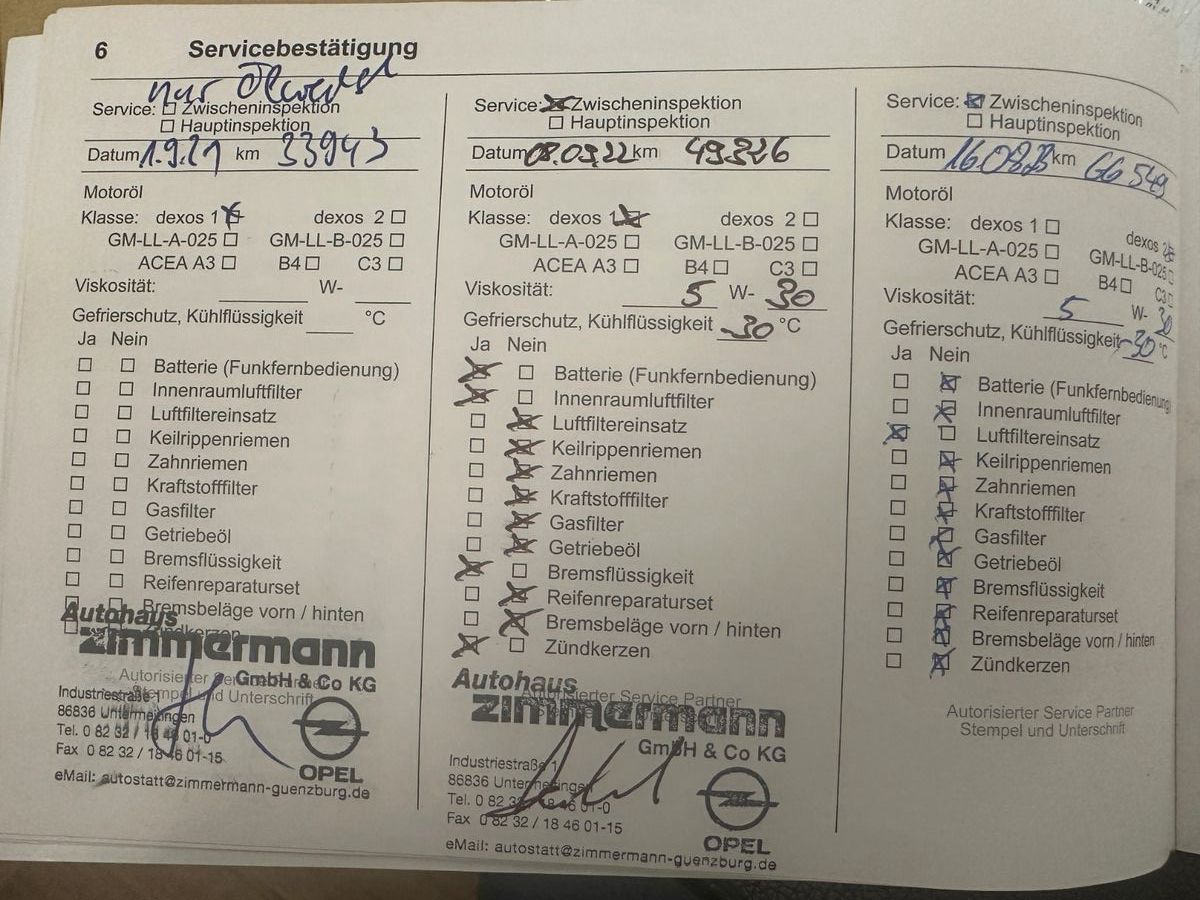 6 Servicebestätigung
nur Ölwechsel
Service: Zwischeninspektion
Hauptinspektion
Datum 1.9.21 km 33943
Motoröl
Klasse: dexos 1 dexos 2
GM-LL-A-025 GM-LL-B-025
ACEA A3 B4 C3
Viskosität: W-
Gefrierschutz, Kühlflüssigkeit °C
Ja Nein
Batterie (Funkfernbedienung)
Innenraumluftfilter
Luftfiltereinsatz
Keilrippenriemen
Zahnriemen
Kraftstofffilter
Gasfilter
Getriebeöl
Bremsflüssigkeit
Reifenreparaturset
Bremsbeläge vorn / hinten
Zündkerzen
Autohaus
Zimmermann
GmbH & Co KG
Autorisierter Service Partner
Stempel und Unterschrift
Industriestraße 1
86836 Untermeitingen
Tel. 0 82 32 / 18 46 01-0
Fax 0 82 32 / 18 46 01-15
OPEL
eMail: autostatt@zimmermann-guenzburg.de
Service: Zwischeninspektion
Hauptinspektion
Datum 08.09.22 km 49326
Motoröl
Klasse: dexos 1 dexos 2
GM-LL-A-025 GM-LL-B-025
ACEA A3 B4 C3
Viskosität: 5 W- 30
Gefrierschutz, Kühlflüssigkeit -30 °C
Ja Nein
Batterie (Funkfernbedienung)
Innenraumluftfilter
Luftfiltereinsatz
Keilrippenriemen
Zahnriemen
Kraftstofffilter
Gasfilter
Getriebeöl
Bremsflüssigkeit
Reifenreparaturset
Bremsbeläge vorn / hinten
Zündkerzen
Autohaus
Autorisierter Service Partner
Zimmermann
GmbH & Co KG
Industriestraße 1
86836 Untermeitingen
Tel. 0 82 32 / 18 46 01-0
Fax 0 82 32 / 18 46 01-15
OPEL
eMail: autostatt@zimmermann-guenzburg.de
Service: Zwischeninspektion
Hauptinspektion
Datum km 66549
Motoröl
Klasse: dexos 1 dexos 2
GM-LL-A-025 GM-LL-B-025
ACEA A3 B4 C3
Viskosität: 5 W- 30
Gefrierschutz, Kühlflüssigkeit -30 °C
Ja Nein
Batterie (Funkfernbedienung)
Innenraumluftfilter
Luftfiltereinsatz
Keilrippenriemen
Zahnriemen
Kraftstofffilter
Gasfilter
Getriebeöl
Bremsflüssigkeit
Reifenreparaturset
Bremsbeläge vorn / hinten
Zündkerzen
Autorisierter Service Partner
Stempel und Unterschrift